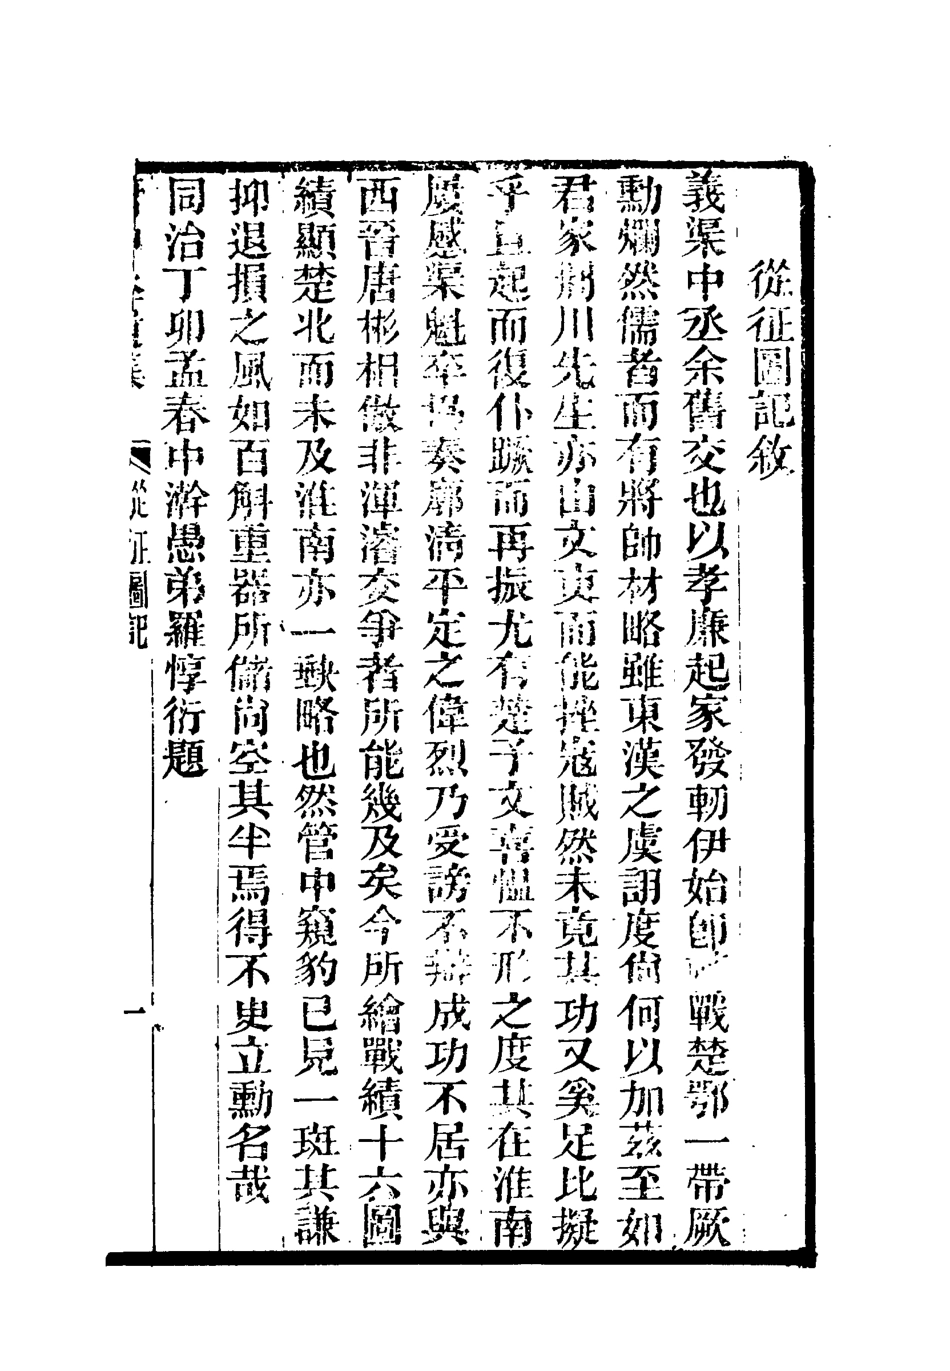 從征圖記敘
義渠中丞余舊交也以孝廉起家發軔伊始卽戰楚鄂一帶厥
勳爛然儒者而有將帥材略雖東漢之虞詡度尙何以加茲至如
君家荊川先生亦由文吏而能挫寇賊然未竟其功又奚足比擬
乎起而復仆蹶而再振尤有楚子文喜慍不形之度其在淮南
屢渠魁卒奏廓清平定之偉烈乃受謗不辯成功不居亦與
西晉唐彬相倣非渾濬交爭者所能幾及矣今所繪戰績十六圖
績顯楚北而未及淮南亦一缺略也然管中窺豹已見一斑其謙
抑退損之風如百斛重器所儲尚空其半焉得不史立勳名哉
同治丁卯孟春中澣愚弟羅惇衍題
從征圖記
一